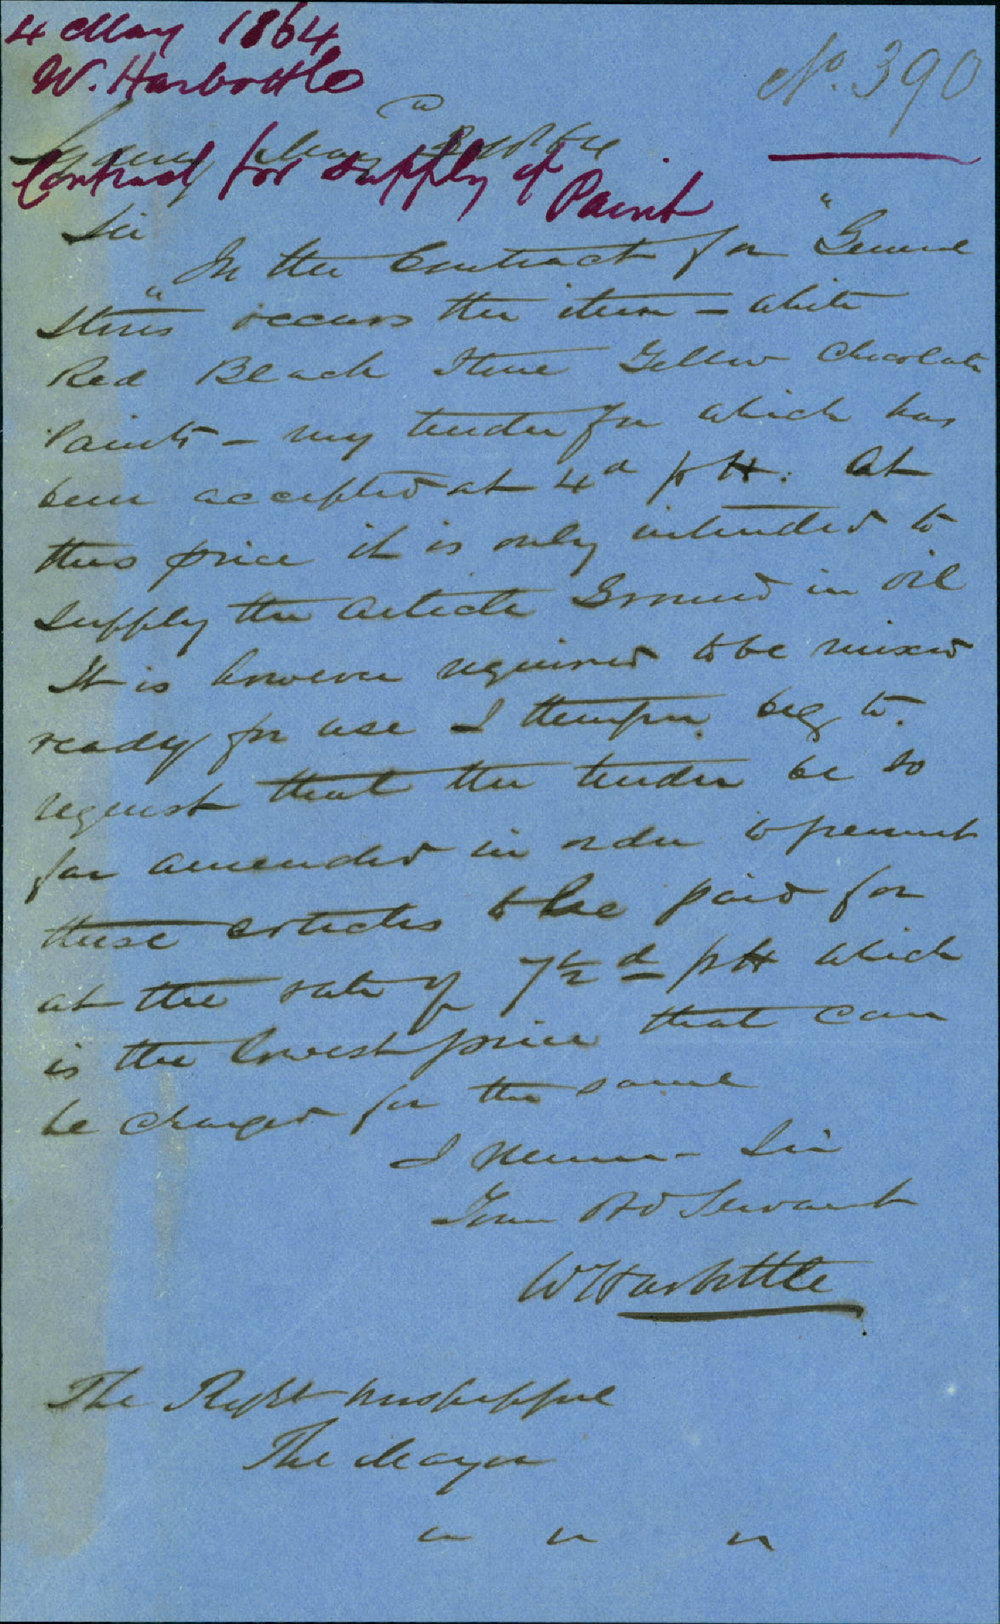 4 May 1864
W. Harbottle
No. 390
Sydney May 3rd 1864
Contract for Supply of Paint
Sir
In the Contract for "General
Stores" occurs the item – White
Red Black Stone Yellow Chocolate
Paints – my tender for which has
been accepted at 4d p lb. At
this price it is only intended to
supply the article Ground in oil
It is however required to be mixed
ready for use I therefore beg to
request that the tender be so
far amended in order to permit
these articles to be paid for
at the rate of 7½d p lb which
is the lowest price that can
be charged for the same
I remain Sir
Your Obd Servant
W Harbottle
The Right Worshipful
The Mayor